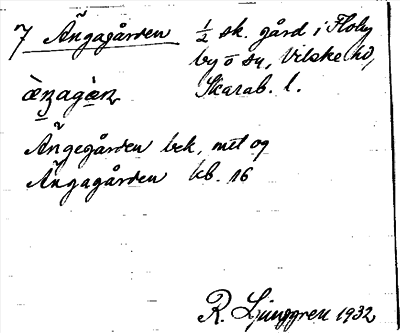 7 Ängagården ½ sk. gård i Floby
by o sn, Vilske hd,
Skarab. l.
Ängegården bek, met og
Ängagården kb. 16
R. Ljunggren 1932